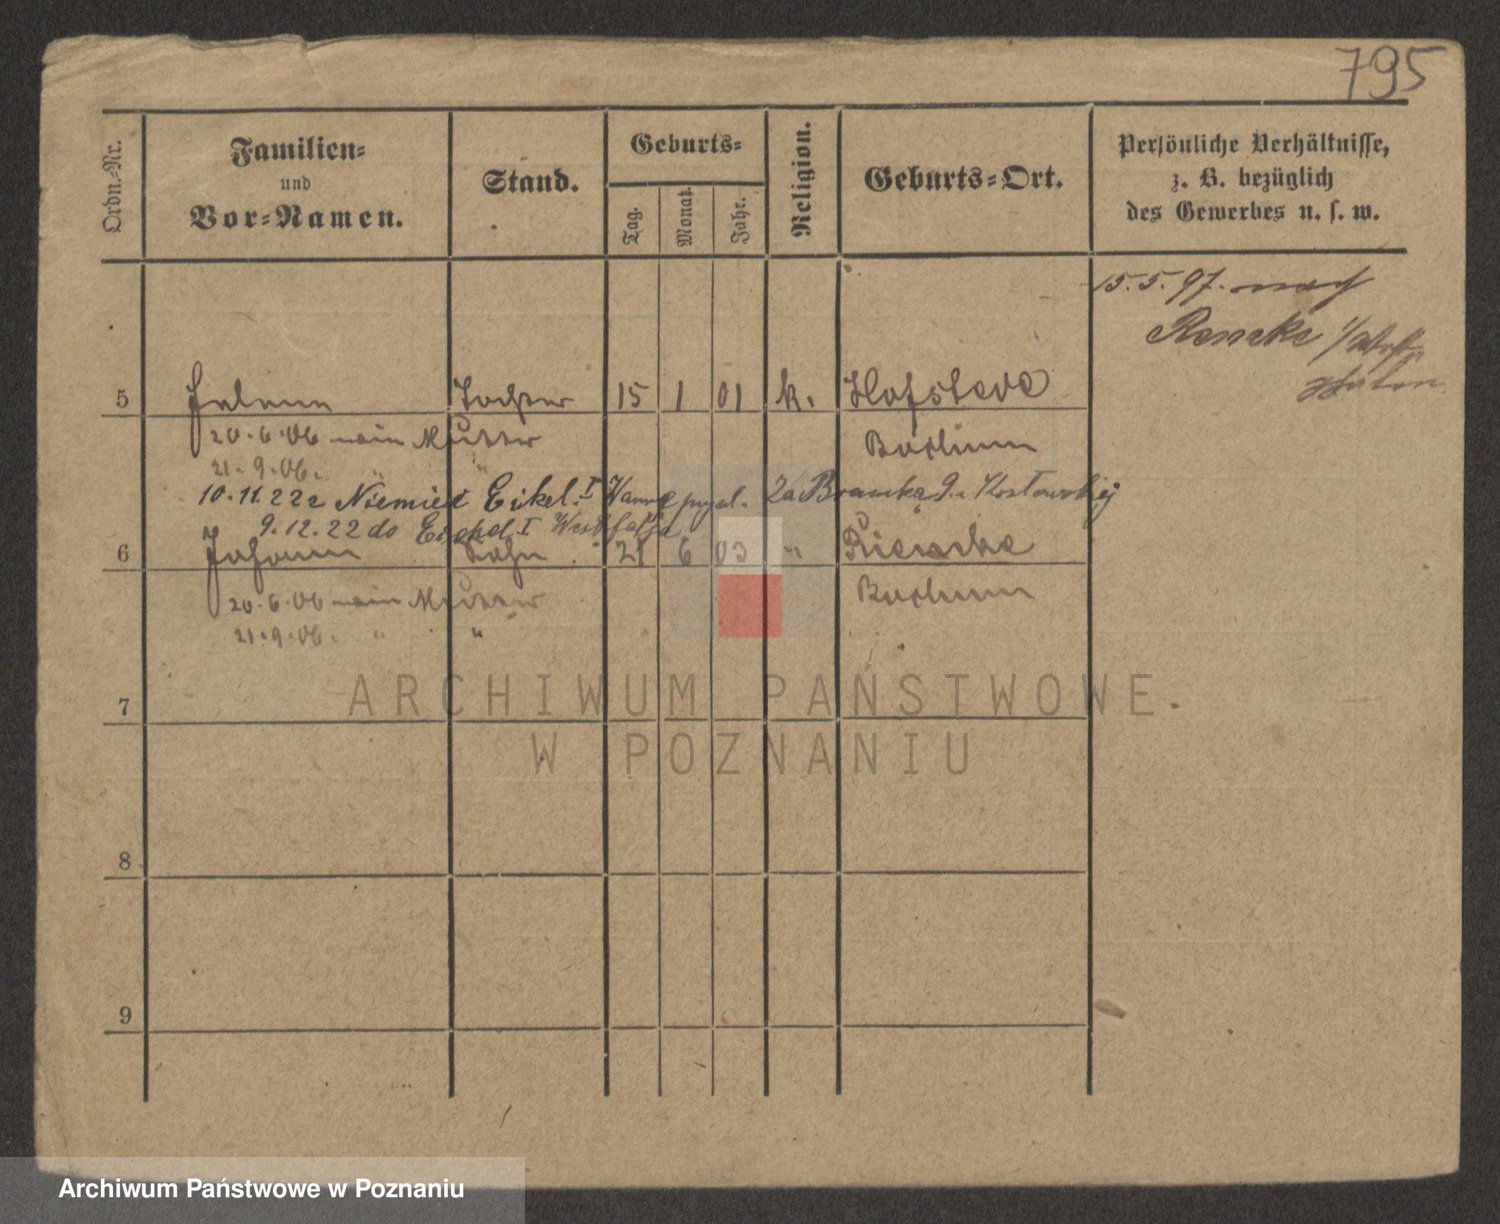 795
Ordn.-Nr.
Familien-
und
Vor-Namen.
Stand.
Geburts-
Tag.
Monat.
Jahr.
Religion.
Geburts-Ort.
Persönliche Verhältnisse,
z. B. bezüglich
des Gewerbes u. s. w.
15.5.97. nach
5 Helene Tochter 15 1 01 k. Hofstede
20.6.06 Mutter Bochum
21.9.06. " "
10.11.22 z Niemiec Eikel I Wanne Za Bramką 9
9.12.22 do Eickel I Westfalja
6 Johann Sohn 21 6 03 " Riemke
20.6.06 Mutter Bochum
21.9.06. " "
7
8
9
ARCHIWUM PAŃSTWOWE
W POZNANIU
Archiwum Państwowe w Poznaniu